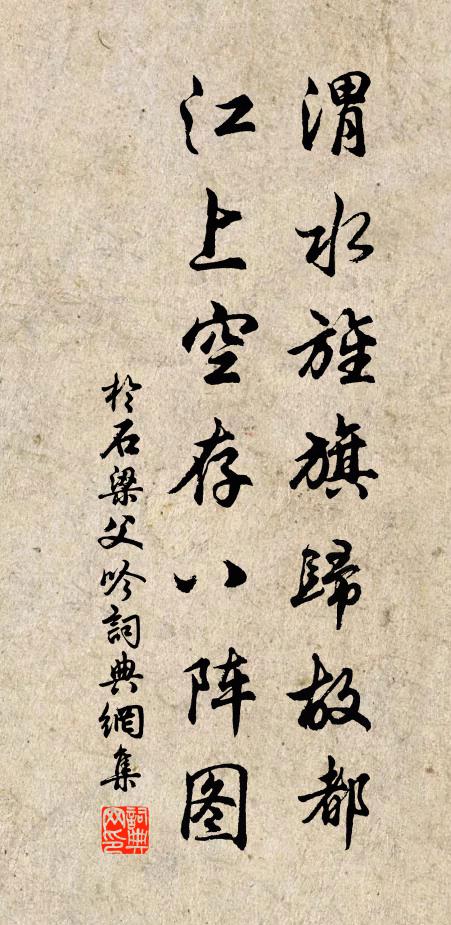 渭水旌旗歸故都
江上空存八阵图
於石梁父吟詞典網集
詞典网印